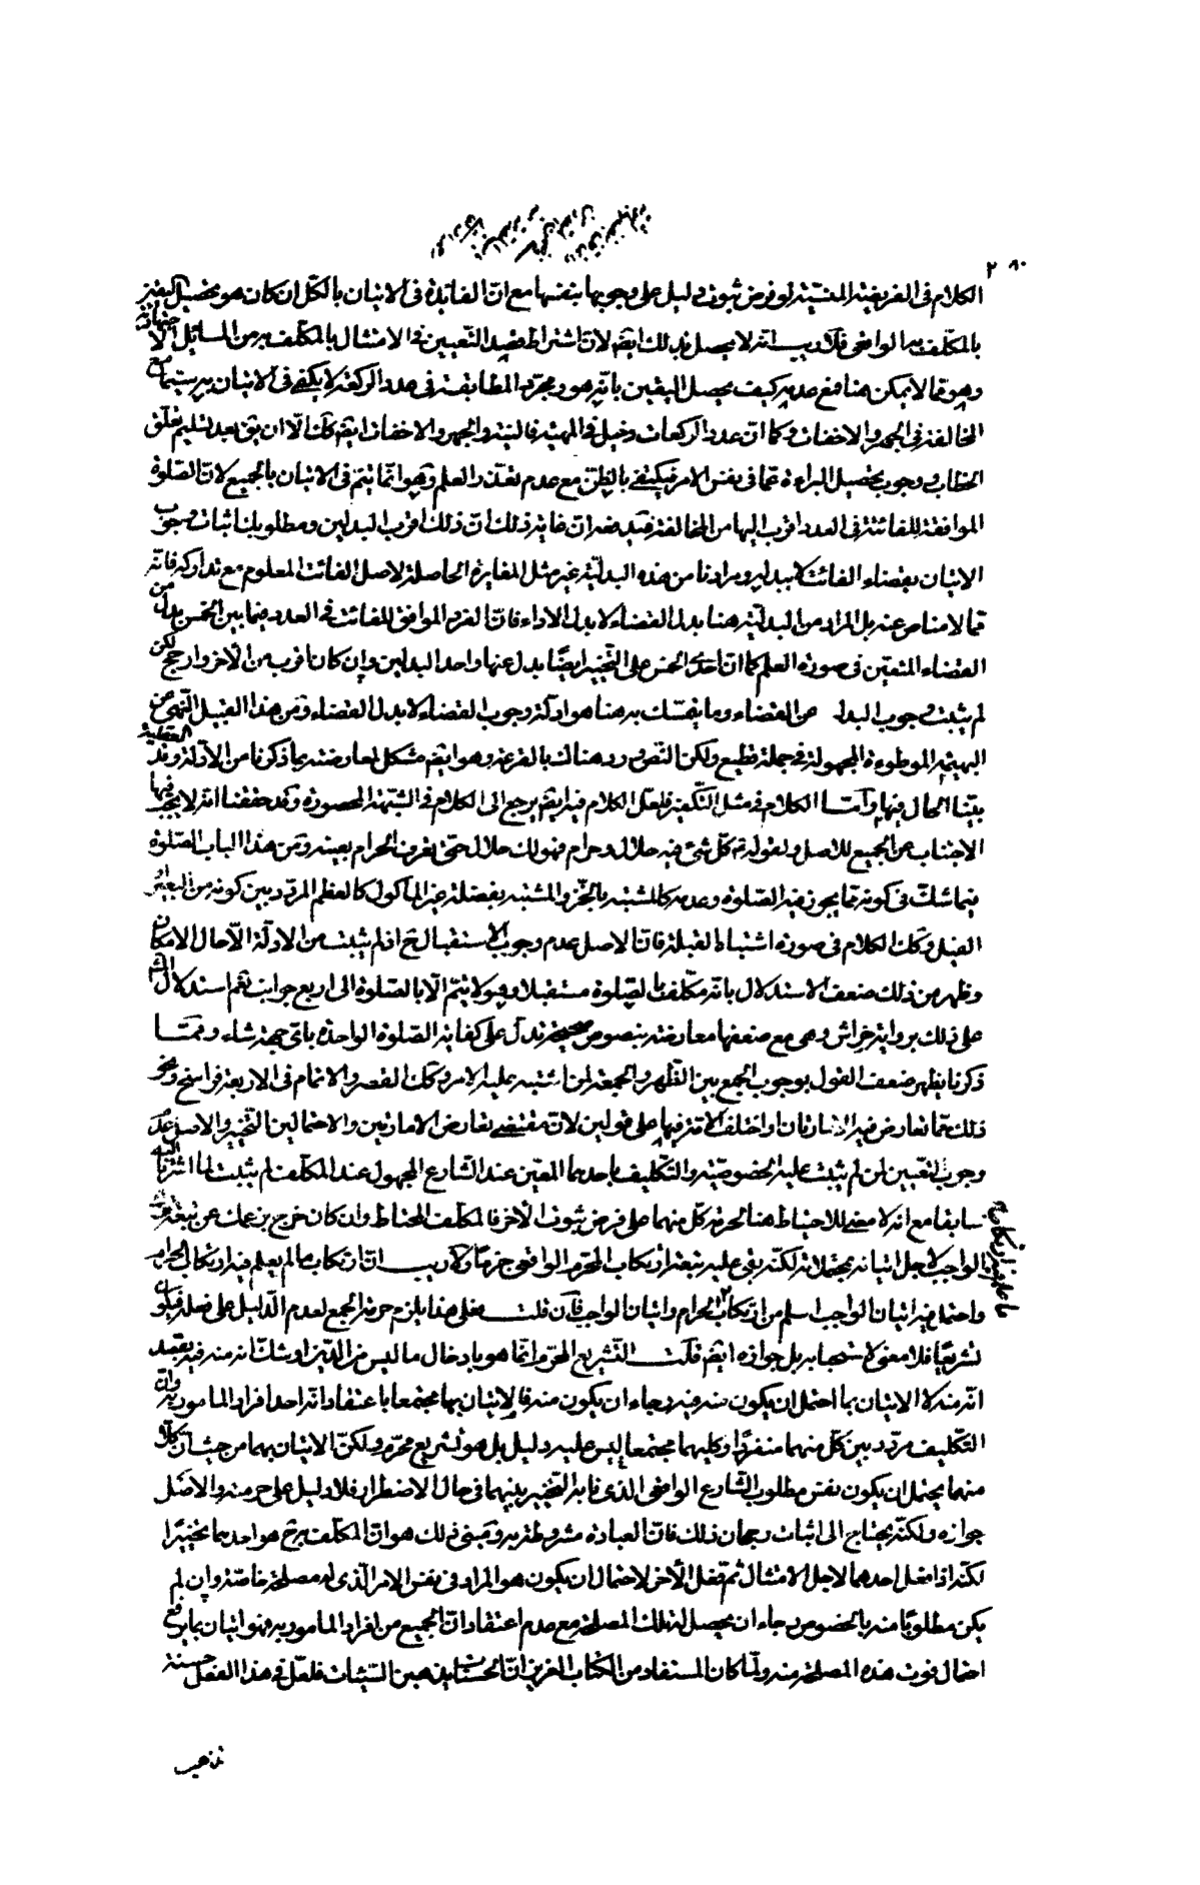 ٢٨٠
الكلام فى الفريضة المنسيّة لو فرض ثبوت دليل على وجوبها بنفسها مع انّ الفايدة فى الاتيان بالكلّ ان كان هو تحصيل اليقين
بالمكلّف به الواقعى فلا ريب انّه لا يحصل بذلك ايضا لانّ اشتراط قصد التّعيين فى الامتثال بالمكلّف به من المسائل الاجتهاديّة
وهو ممّا لا يمكن هنا فمع عدمه كيف يحصل اليقين بانّه هو ومجرّد المطابقة فى عدد الركعة لا يكفى فى الاتيان به سيّما مع
المخالفة فى الجهر والاخفات وكما انّ عدد الركعات دخيل فى الهيئة فالنيّة والجهر والاخفات ايضا كك الّا ان يقى بعد تسليم تعلّق
الخطاب ووجوب تحصيل البراءة عمّا فى نفس الامر فيكتفى بالظنّ مع عدم تعذر العلم وهو انّما يتمّ فى الاتيان بالجميع لانّ الصّلوة
الموافقة للفائتة فى العدد اقرب اليها من المخالفة فيه انّ غاية ذلك انّ ذلك اقرب البدلين ومطلوبك اثبات وجوب
الاتيان بقضاء الفائت لا ببدله ومرادنا من هذه البدليّة غير مثل المغايرة الحاصلة لاصل الفائت المعلوم مع تداركه فانّه
ممّا لا مناص عنه بل المراد من البدليّة هنا بدل القضاء لا بدل الاداء فانّ الفرد الموافق للفائت فى العدد فيما بين الخمس بدل من
القضاء المتعيّن فى صورة العلم كما انّ احدى الخمس على التّخيير ايضًا بدل عنها واحد البدلين وان كان اقرب من الآخر وارجح لكن
لم يثبت وجوب البدل عن القضاء وما يتمسّك به هنا هو ادلّة وجوب القضاء لا بدل القضاء ومن هذا القبيل النّهى عن
البهيمة الموطوءة المجهولة فى جملة قطيع ولكن النّص ورد هنالك بالقرعة وهو ايضا مشكل لمعارضته بما ذكرنا من الادلّة العقلية وقد
بيّنا الحال فيها وامّا الكلام فى مثل فلعلّ الكلام فيه ايضا يرجع الى الكلام فى الشّبهة المحصورة وقد حقّقنا انّه لا يجب فيها
الاجتناب عن الجميع للاصل ولقوله ع كلّ شئ فيه حلال وحرام فهو لك حلال حتّى تعرف الحرام بعينه ومن هذا الباب الصّلوة
فيما شكّ فى كونه ممّا يجوز فيه الصّلوة وعدمه كالمشتبه بالخزّ والمشتبه بفضلة غير المأكول كالعظم المردّد بين كونه من البعير او
الفيل وكك الكلام فى صورة اشتباه القبلة فانّ الاصل عدم وجوب الاستقبال ح اذ لم يثبت من الادلّة الّا حال الامكان
وظهر من ذلك ضعف الاستدلال بانّه مكلّف بالصّلوة مستقبلا وهو لا يتمّ الّا بالصّلوة الى اربع جوانب ثم استدلال
على ذلك برواية خراش وهى مع ضعفها معارضة بنصوص صحيحة تدلّ على كفاية الصّلوة الواحدة باىّ جهة شاء وممّا
ذكرنا يظهر ضعف القول بوجوب الجمع بين الظّهر والجمعة لمن اشتبه عليه الامر وكك القصر والاتمام فى الاربعة فراسخ ونحو
ذلك ممّا تعارض فيه الامارتان او اختلف الامّة فيها على قولين لانّ مقتضى تعارض الامارتين والاحتمالين التّخيير والاصل عدم
وجوب التّعيين لمن لم يثبت عليه الخصوصيّة والتّكليف باحدهما المعيّن عند الشّارع المجهول عند المكلّف لم يثبت لما اشرنا اليه
سابقا مع انّه لا معنى للاحتياط هنا لحرمة كلّ منهما على فرض ثبوت الآخر فالمكلّف المحتاط وان كان خرج بزعمك عن تبعة ترك
الواجب لاجل اتيانه بمحتملاته لكنّه بقى عليه تبعة ارتكاب المحرّم الواقعى جزمًا ولا ريب انّ ارتكاب ما لم يعلم فيه ارتكاب الحرام
واحتمل فيه اتيان الواجب اسلم من ارتكاب الحرام واتيان الواجب فان قلت فعلى هذا يلزم حرمة الجمع لعدم الدّليل على فعله فيكون
تشريعًا فلا معنى لاستحبابه بل جوازه ايضا قلت التّشريع المحرّم انّما هو بادخال ما ليس من الدّين او شكّ انّه منه فيه بقصد
انّه منه لا الاتيان بما احتمل ان يكون منه فيه رجاء ان يكون منه فالاتيان بهما مجتمعا باعتقاد انّه احد افراد المامور به وانّ
التّكليف مردّد بين كلّ منهما منفردًا وكليهما مجتمعا ليس عليه دليل بل هو تشريع محرّم ولكنّ الاتيان بهما من حيث انّ كلّا
منهما يحتمل ان يكون نفس مطلوب الشّارع الواقعى الذى نابه التّخيير بينهما فى حال الاضطرار فلا دليل على حرمته والاصل
جوازه ولكنّه يحتاج الى اثبات رجحان ذلك فانّ العبادة مشروطة به ومبنى ذلك هو انّ المكلّف به ح هو احدهما تخييرًا
لكنّه اذا فعل احدهما لاجل الامتثال ثم فعل الآخر لاحتمال ان يكون هو المراد فى نفس الامر الّذى له مصلحة خاصّة وان لم
يكن مطلوبًا منه بالخصوص رجاء ان يحصل له تلك المصلحة مع عدم اعتقاد انّ الجميع من افراد المامور به فهو اتيان بما يرفع
احتمال فوت هذه المصلحة منه ولمّا كان المستفاد من الكتاب العزيز انّ الحسنات يذهبن السّيّئات فلعلّ فى هذا الفعل حسنة
تذهب